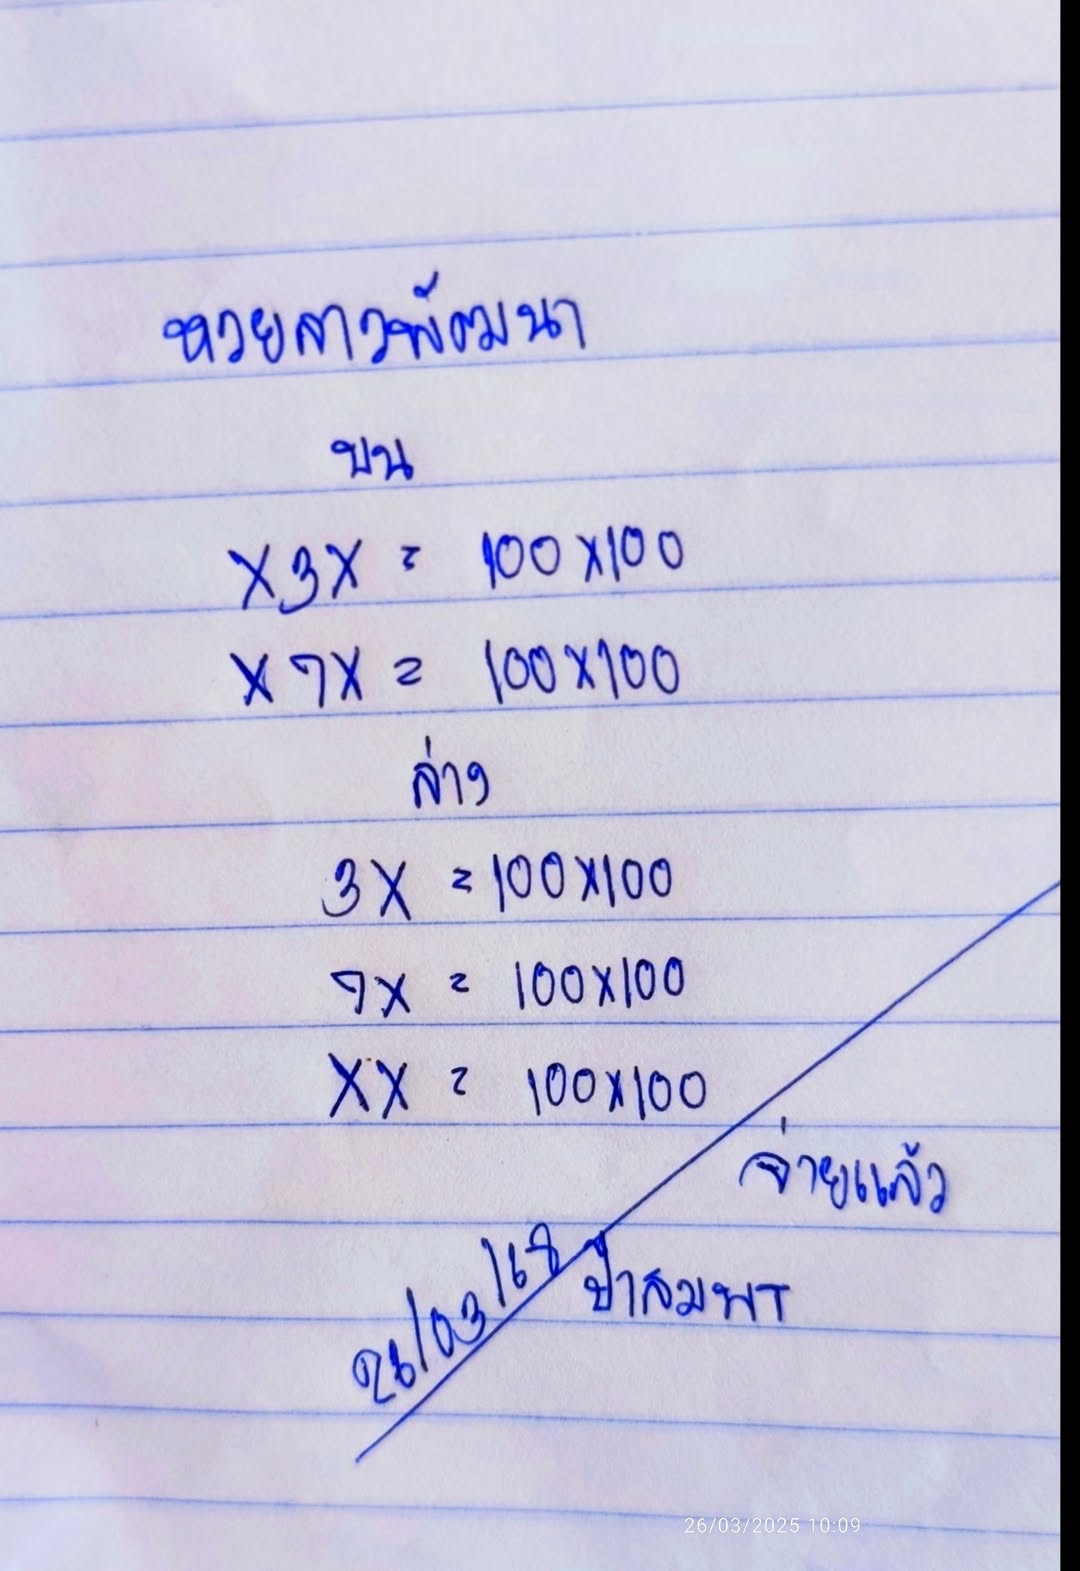 หวยลาวพัฒนา
บน
X3X = 100X100
X7X = 100X100
ล่าง
3X = 100X100
7X = 100X100
XX = 100X100
จ่ายแล้ว
26/03/68
ป้าสมพร
26/03/2025 10:09